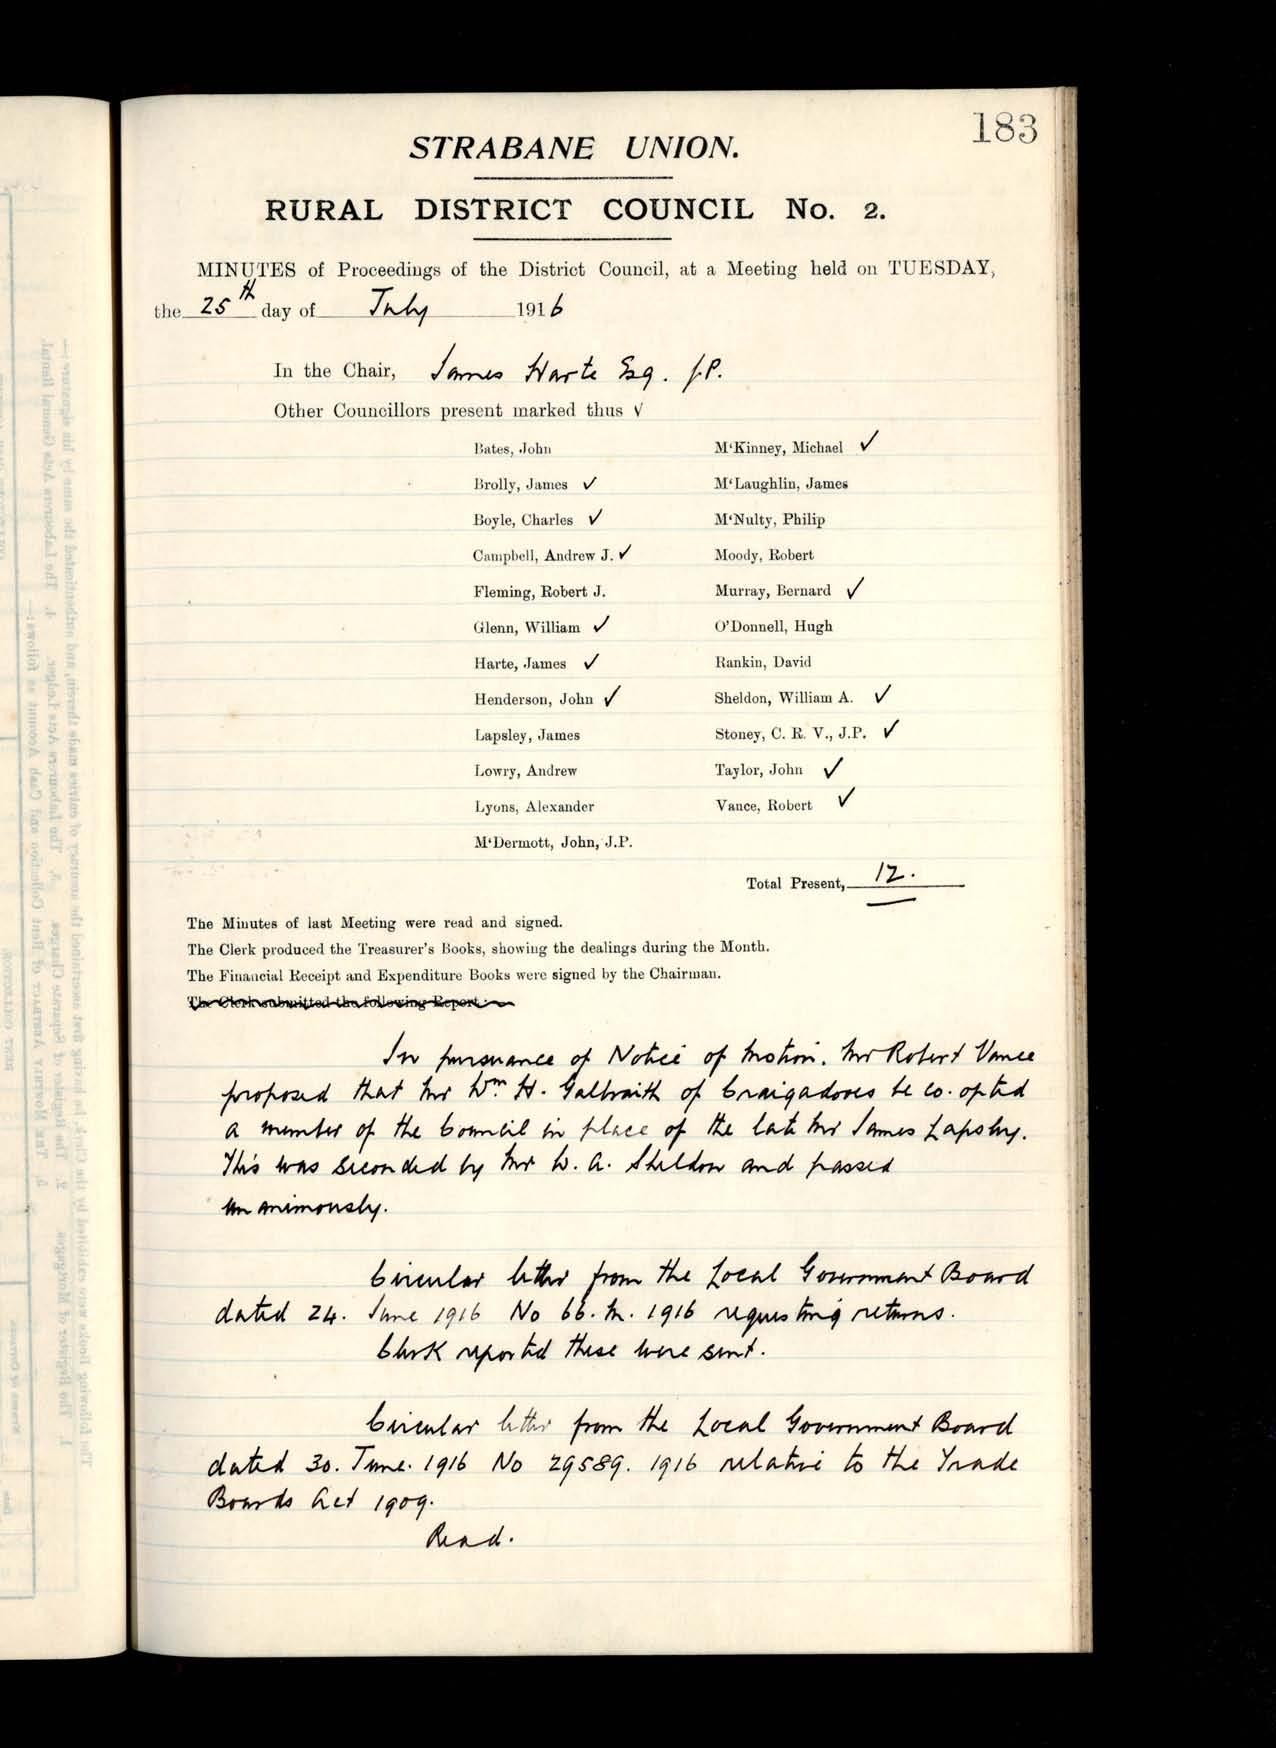 183
STRABANE UNION.
RURAL DISTRICT COUNCIL No. 2.
MINUTES of Proceedings of the District Council, at a Meeting held on TUESDAY,
the 25th day of July 1916
In the Chair, James Harte Esq. J.P.
Other Councillors present marked thus √
Bates, John M‘Kinney, Michael ✓
Brolly, James ✓ M‘Laughlin, James
Boyle, Charles ✓ M‘Nulty, Philip
Campbell, Andrew J. ✓ Moody, Robert
Fleming, Robert J. Murray, Bernard ✓
Glenn, William ✓ O’Donnell, Hugh
Harte, James ✓ Rankin, David
Henderson, John ✓ Sheldon, William A. ✓
Lapsley, James Stoney, C. R. V., J.P. ✓
Lowry, Andrew Taylor, John ✓
Lyons, Alexander Vance, Robert ✓
M‘Dermott, John, J.P.
Total Present, 12.
The Minutes of last Meeting were read and signed.
The Clerk produced the Treasurer’s Books, showing the dealings during the Month.
The Financial Receipt and Expenditure Books were signed by the Chairman.
The Clerk submitted the following Report:—
In pursuance of Notice of Motion. Mr Robert Vance
proposed that Mr Wm. H. Galbraith of Craigadooes be co-opted
a member of the Council in place of the late Mr James Lapsley.
This was seconded by Mr W. A. Sheldon and passed
unanimously.
Circular letter from the Local Government Board
dated 24. June 1916 No 66. M. 1916 requesting returns.
Clerk reported these were sent.
Circular letter from the Local Government Board
dated 30. June. 1916 No 29589. 1916 relative to the Trade
Boards Act 1909.
Read.